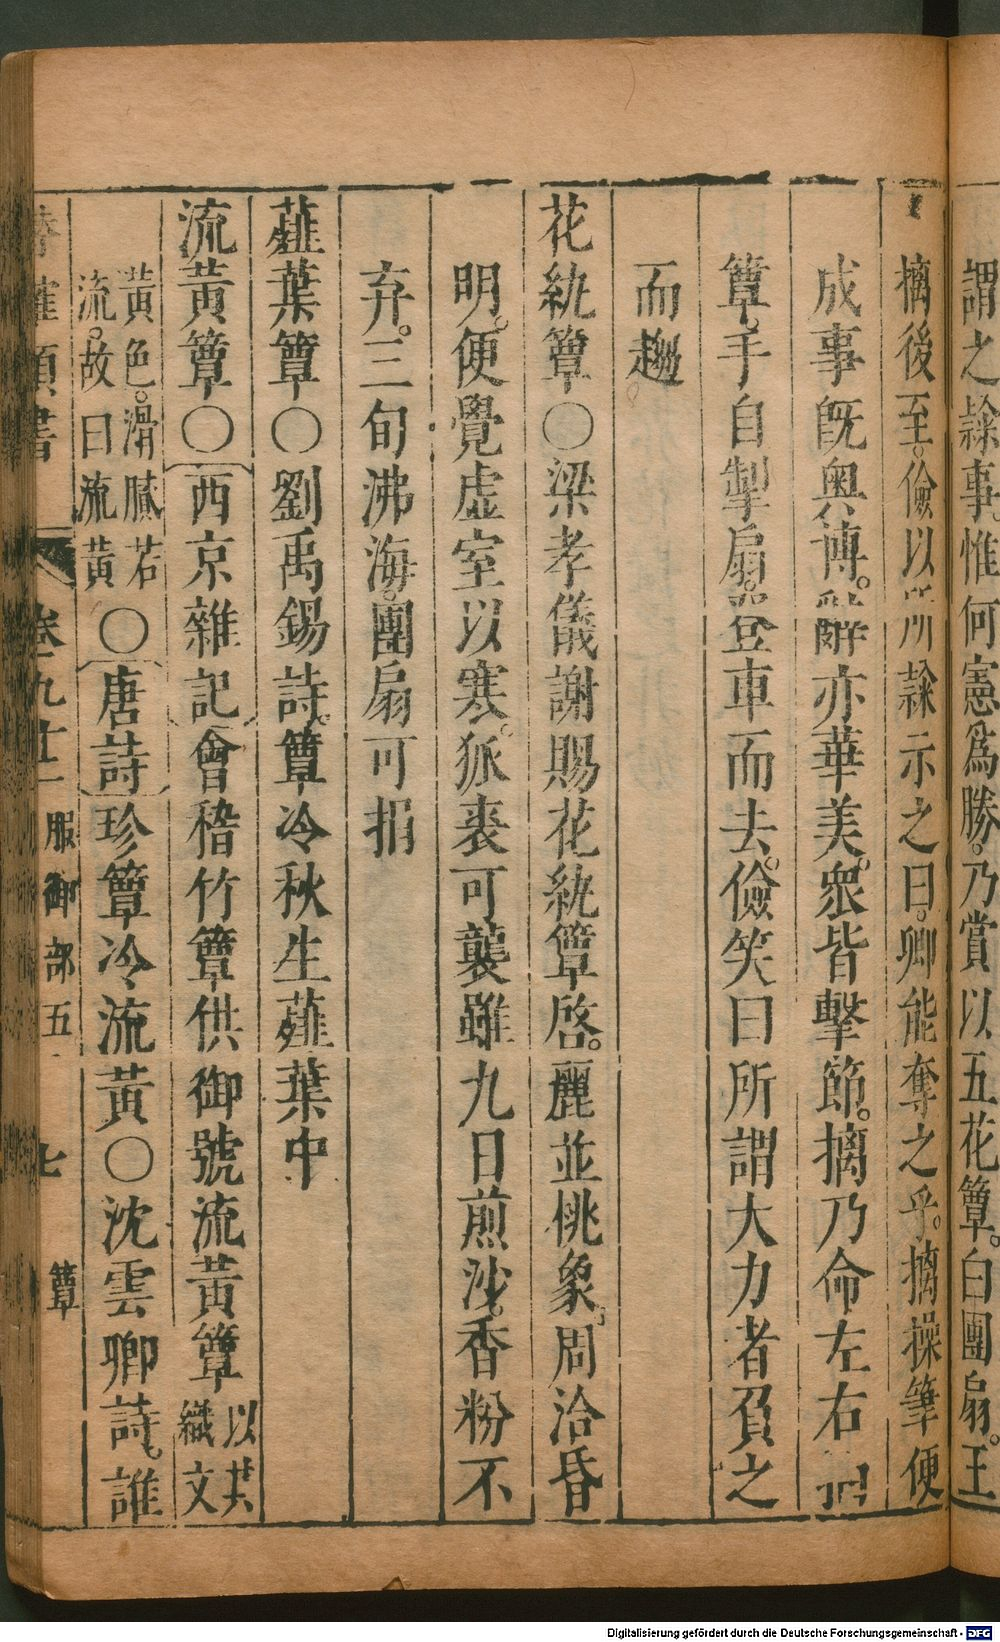 謂之隷事。惟何憲爲勝。乃賞以五花簟。白團扇。王
摛後至。儉以所隷示之曰。卿能奪之乎。摛操筆便
成事既奥博。辭亦華美。衆皆擊節。摛乃命左右
簟。手自掣扇。登車而去。儉笑曰所謂大力者負之
而趨。
花紈簟〇梁孝儀謝賜花紈簟啓。麗並桃象。周洽昏
明。便覺虚室以寒。狐裘可襲雖九日煎沙。香粉不
弃。三旬沸海。團扇可捐
薤葉簟〇劉禹錫詩。簟冷秋生薤葉中
流黄簟〇西京雜記會稽竹簟供御號流黄簟以其織文
黄色。滑膩若流。故曰流黄〇唐詩珍簟冷流黄〇沈雲卿詩。誰
類書 卷九十一 服御部五 七 簟
Digitalisierung gefördert durch die Deutsche Forschungsgemeinschaft - DFG